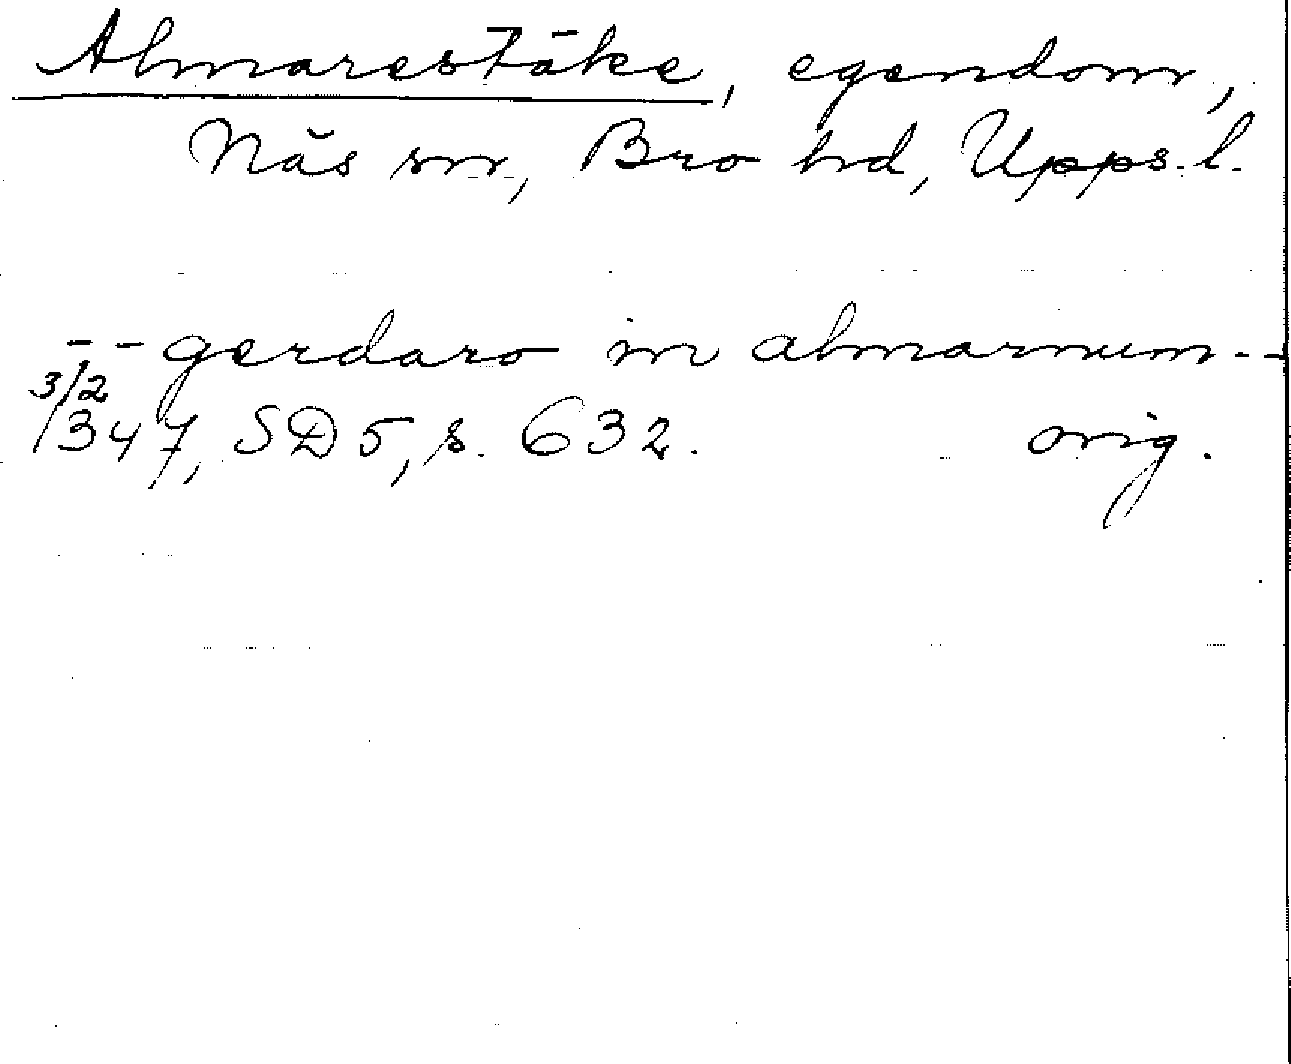 Almarestäke, egendom,
Näs sn, Bro hd, Upps. l.
-- gerdaro in almarnum --
3/2
1347, SD 5, s. 632. orig.